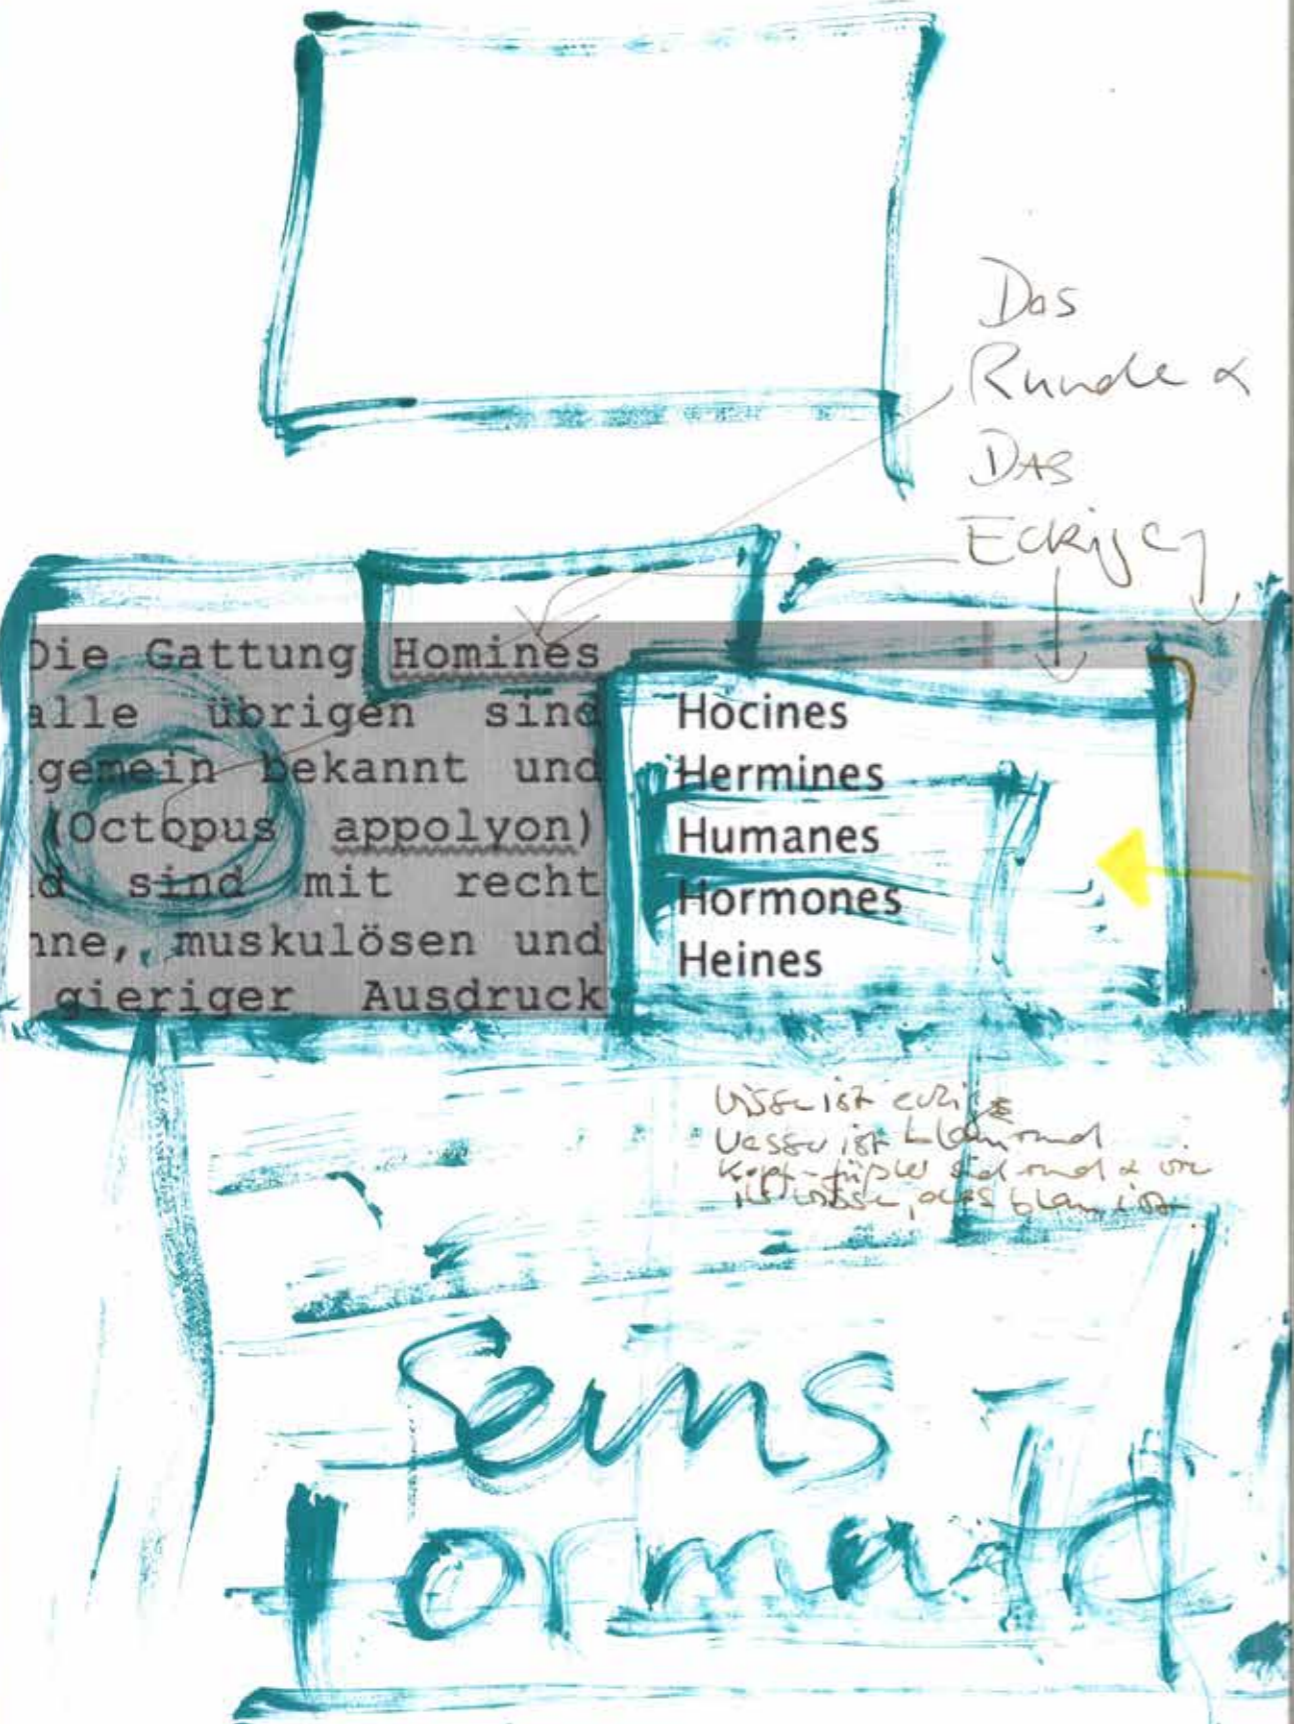 Das
Runde &
DAS
Eckige
Die Gattung Homines
alle übrigen sind
gemein bekannt und
(Octopus appolyon)
d sind mit recht
nne, muskulösen und
gieriger Ausdruck
Hocines
Hermines
Humanes
Hormones
Heines
ist
ist blau rund
Kopf-füßler sind rund &
blau ist
Seins-
formate